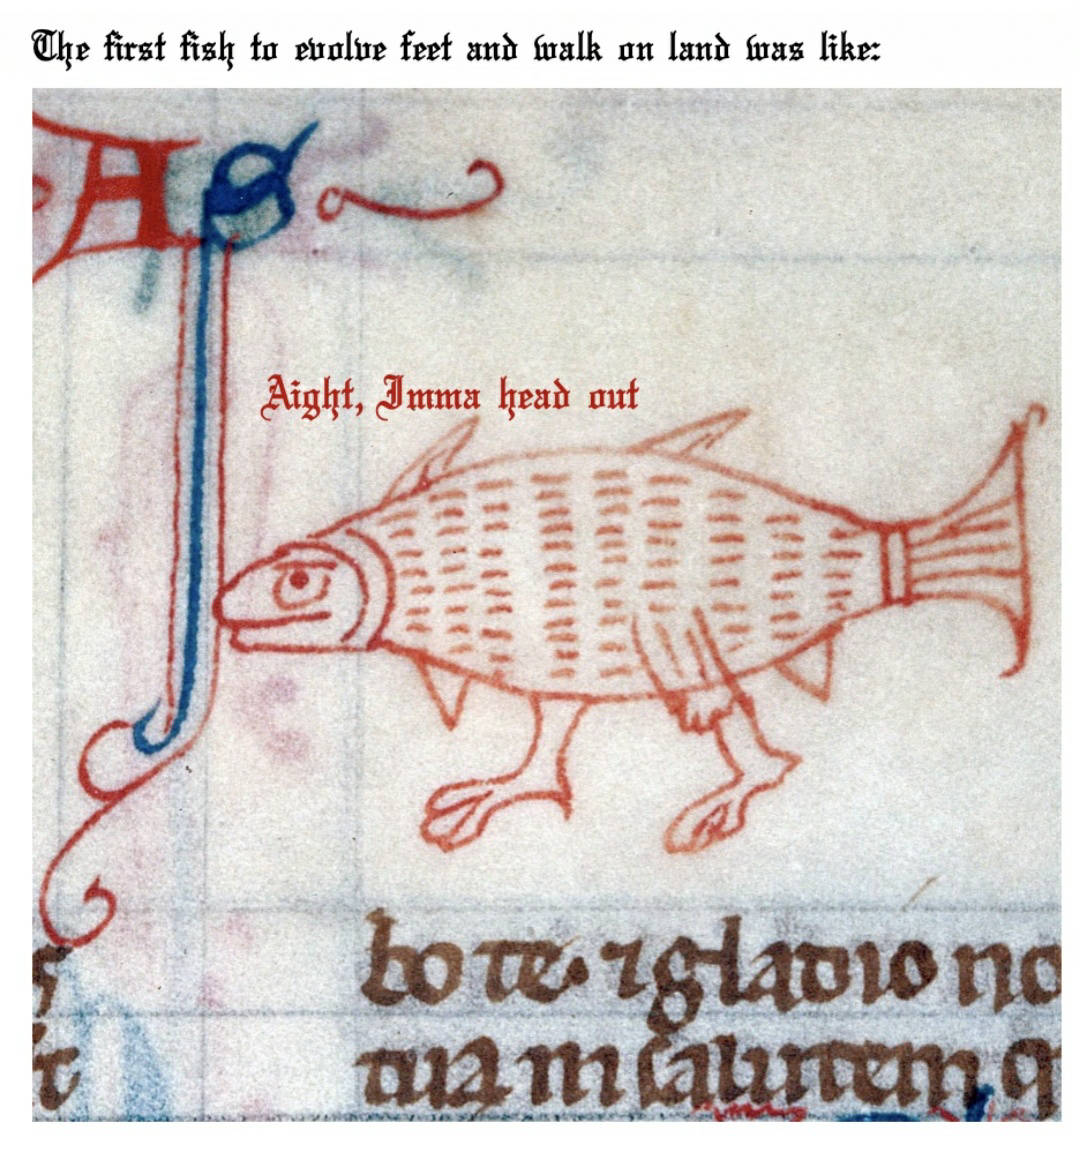 The first fish to evolve feet and walk on land was like:
A S
Aight, Imma head out
bo te. ⁊ gladio no
tuam salutem q